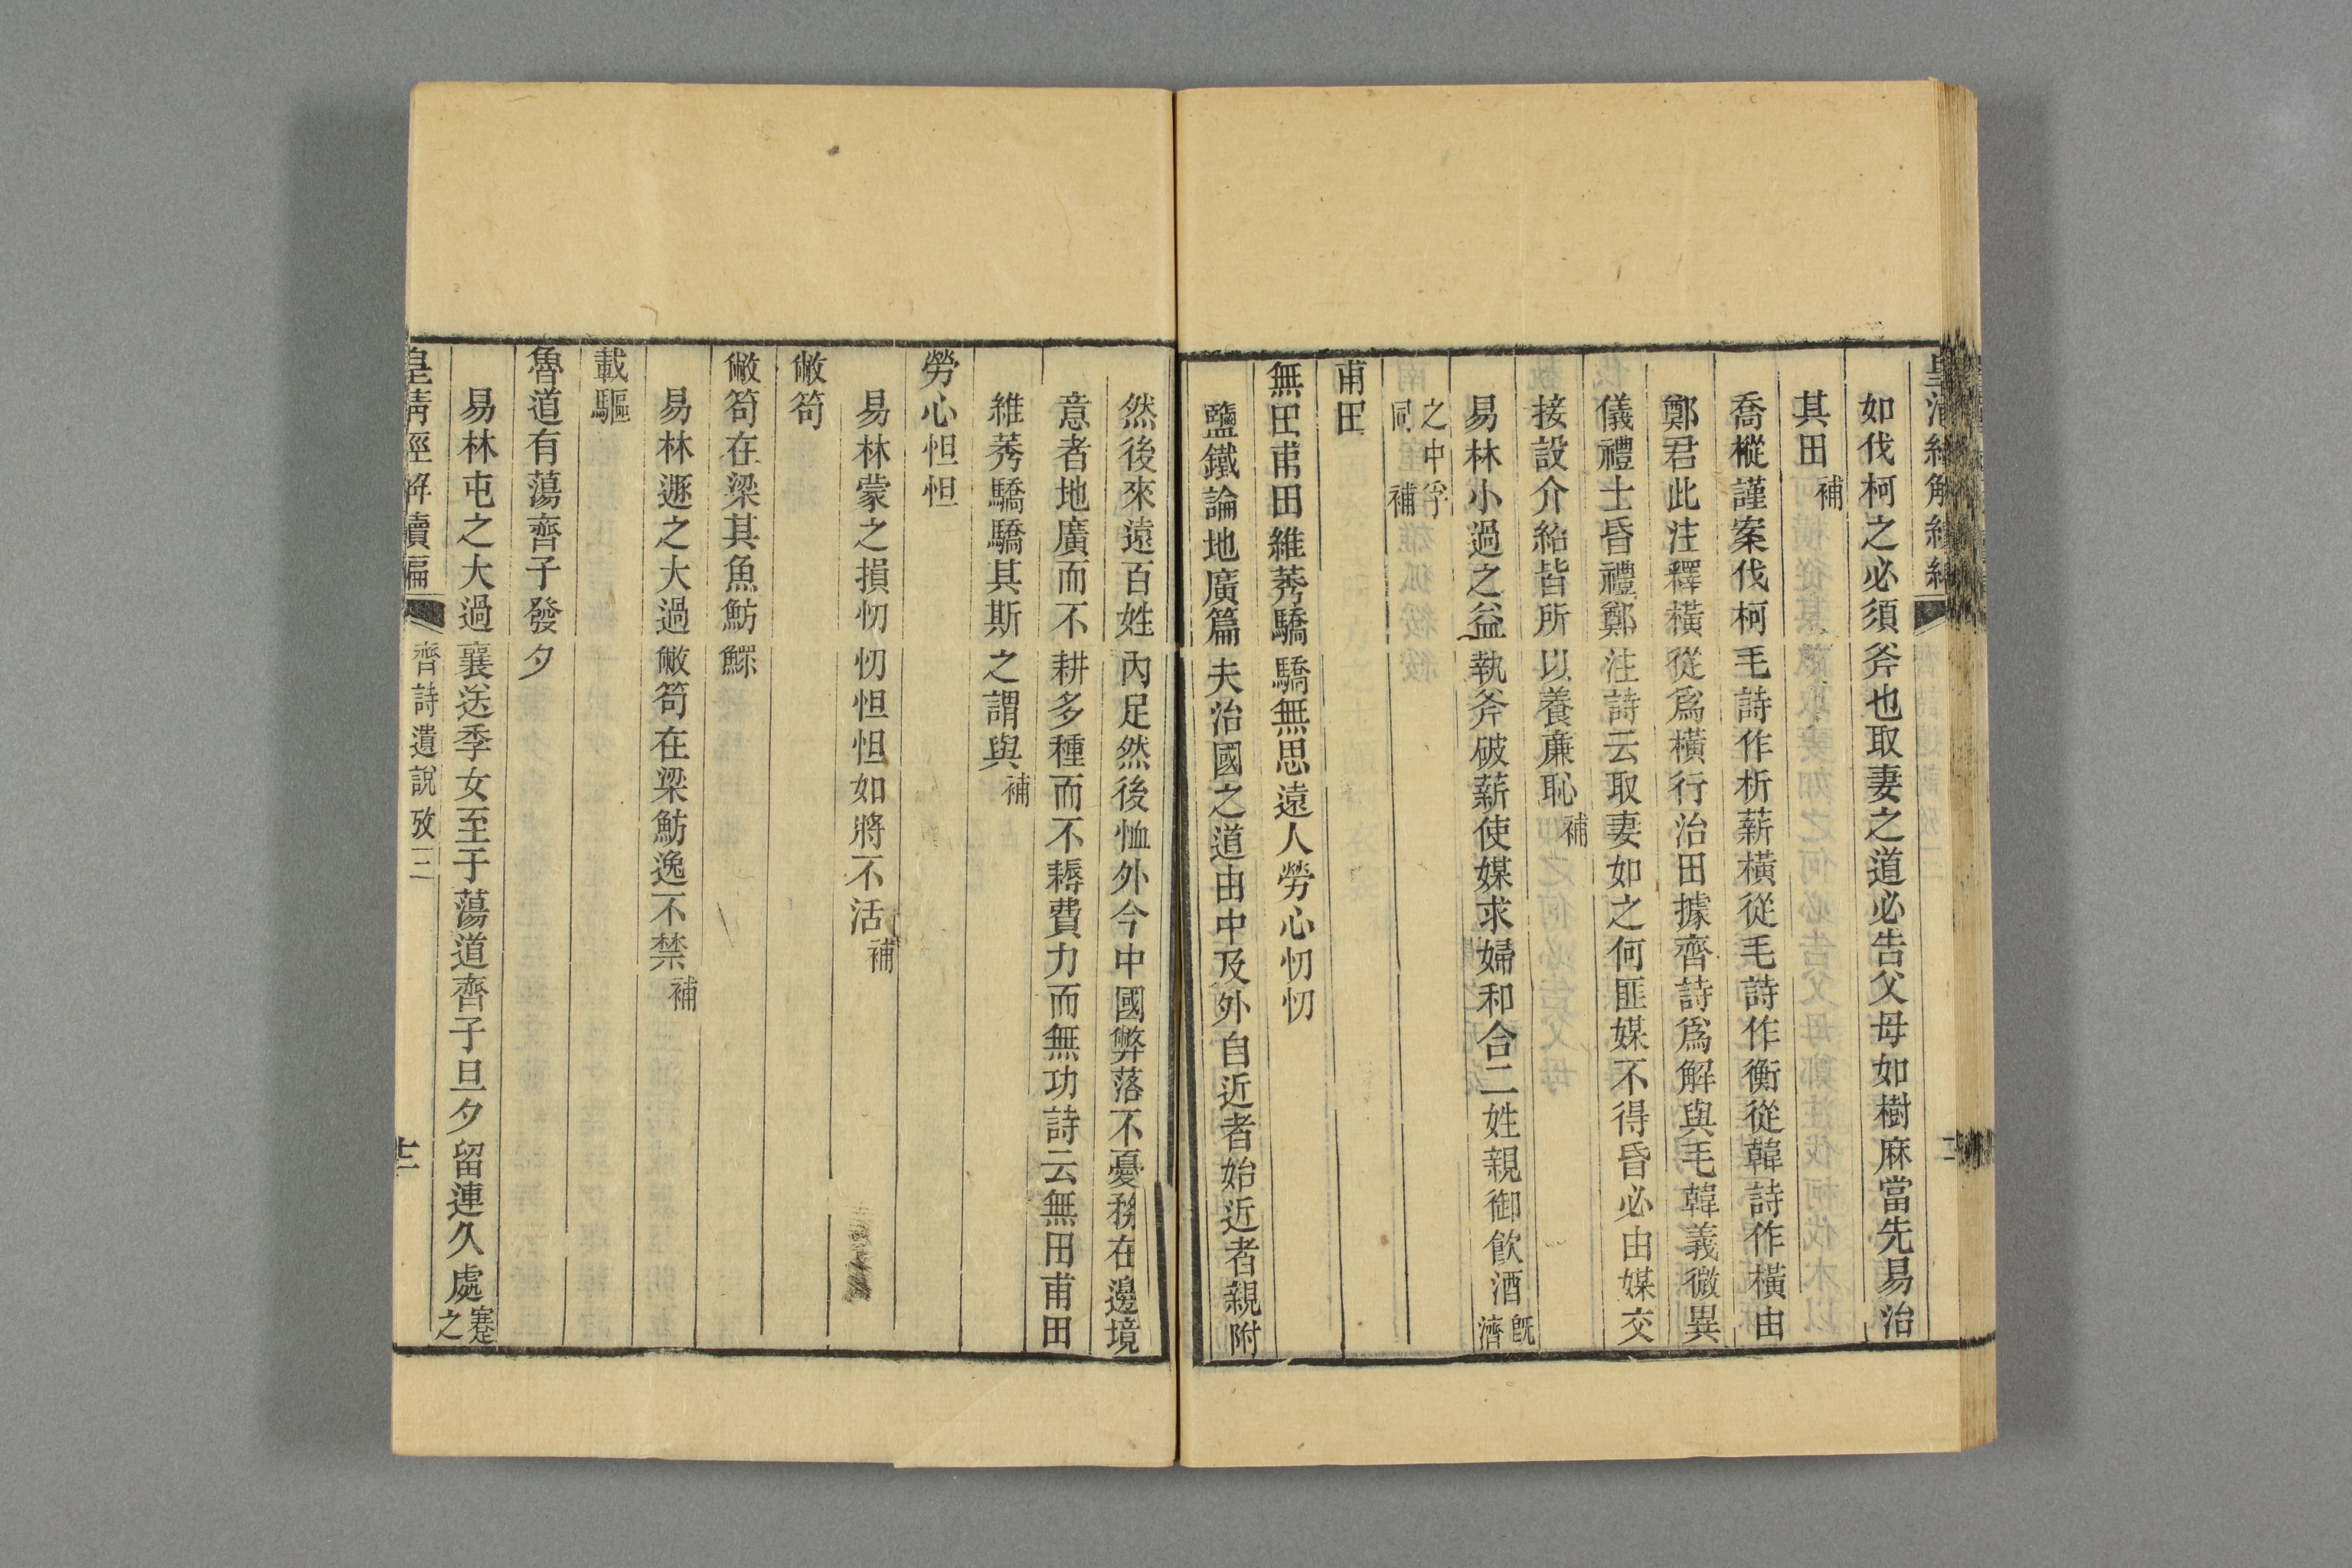 如伐柯之必須斧也取妻之道必告父母如樹麻當先易治
其田補
喬樅謹案伐柯毛詩作析薪橫從毛詩作衡從韓詩作橫由
鄭君此注釋橫從爲橫行治田據齊詩爲解與毛韓義微異
儀禮士昏禮鄭注詩云取妻如之何匪媒不得昏必由媒交
接設介紹皆所以養廉恥補
易林小過之益執斧破薪使媒求婦和合二姓親御飲酒既濟
之中孚同補
甫田
無田甫田維莠驕驕無思遠人勞心忉忉
鹽鐵論地廣篇夫治國之道由中及外自近者始近者親附
然後來遠百姓內足然後恤外今中國弊落不憂務在邊境
意者地廣而不耕多種而不耨費力而無功詩云無田甫田
維莠驕驕其斯之謂與補
勞心怛怛
易林蒙之損忉忉怛怛如將不活補
敝笱
敝笱在梁其魚魴鰥
易林遯之大過敝笱在梁魴逸不禁補
載驅
魯道有蕩齊子發夕
易林屯之大過襄送季女至于蕩道齊子旦夕留連久處蹇之
皇清經解續編
齊詩遺說攷三
十二